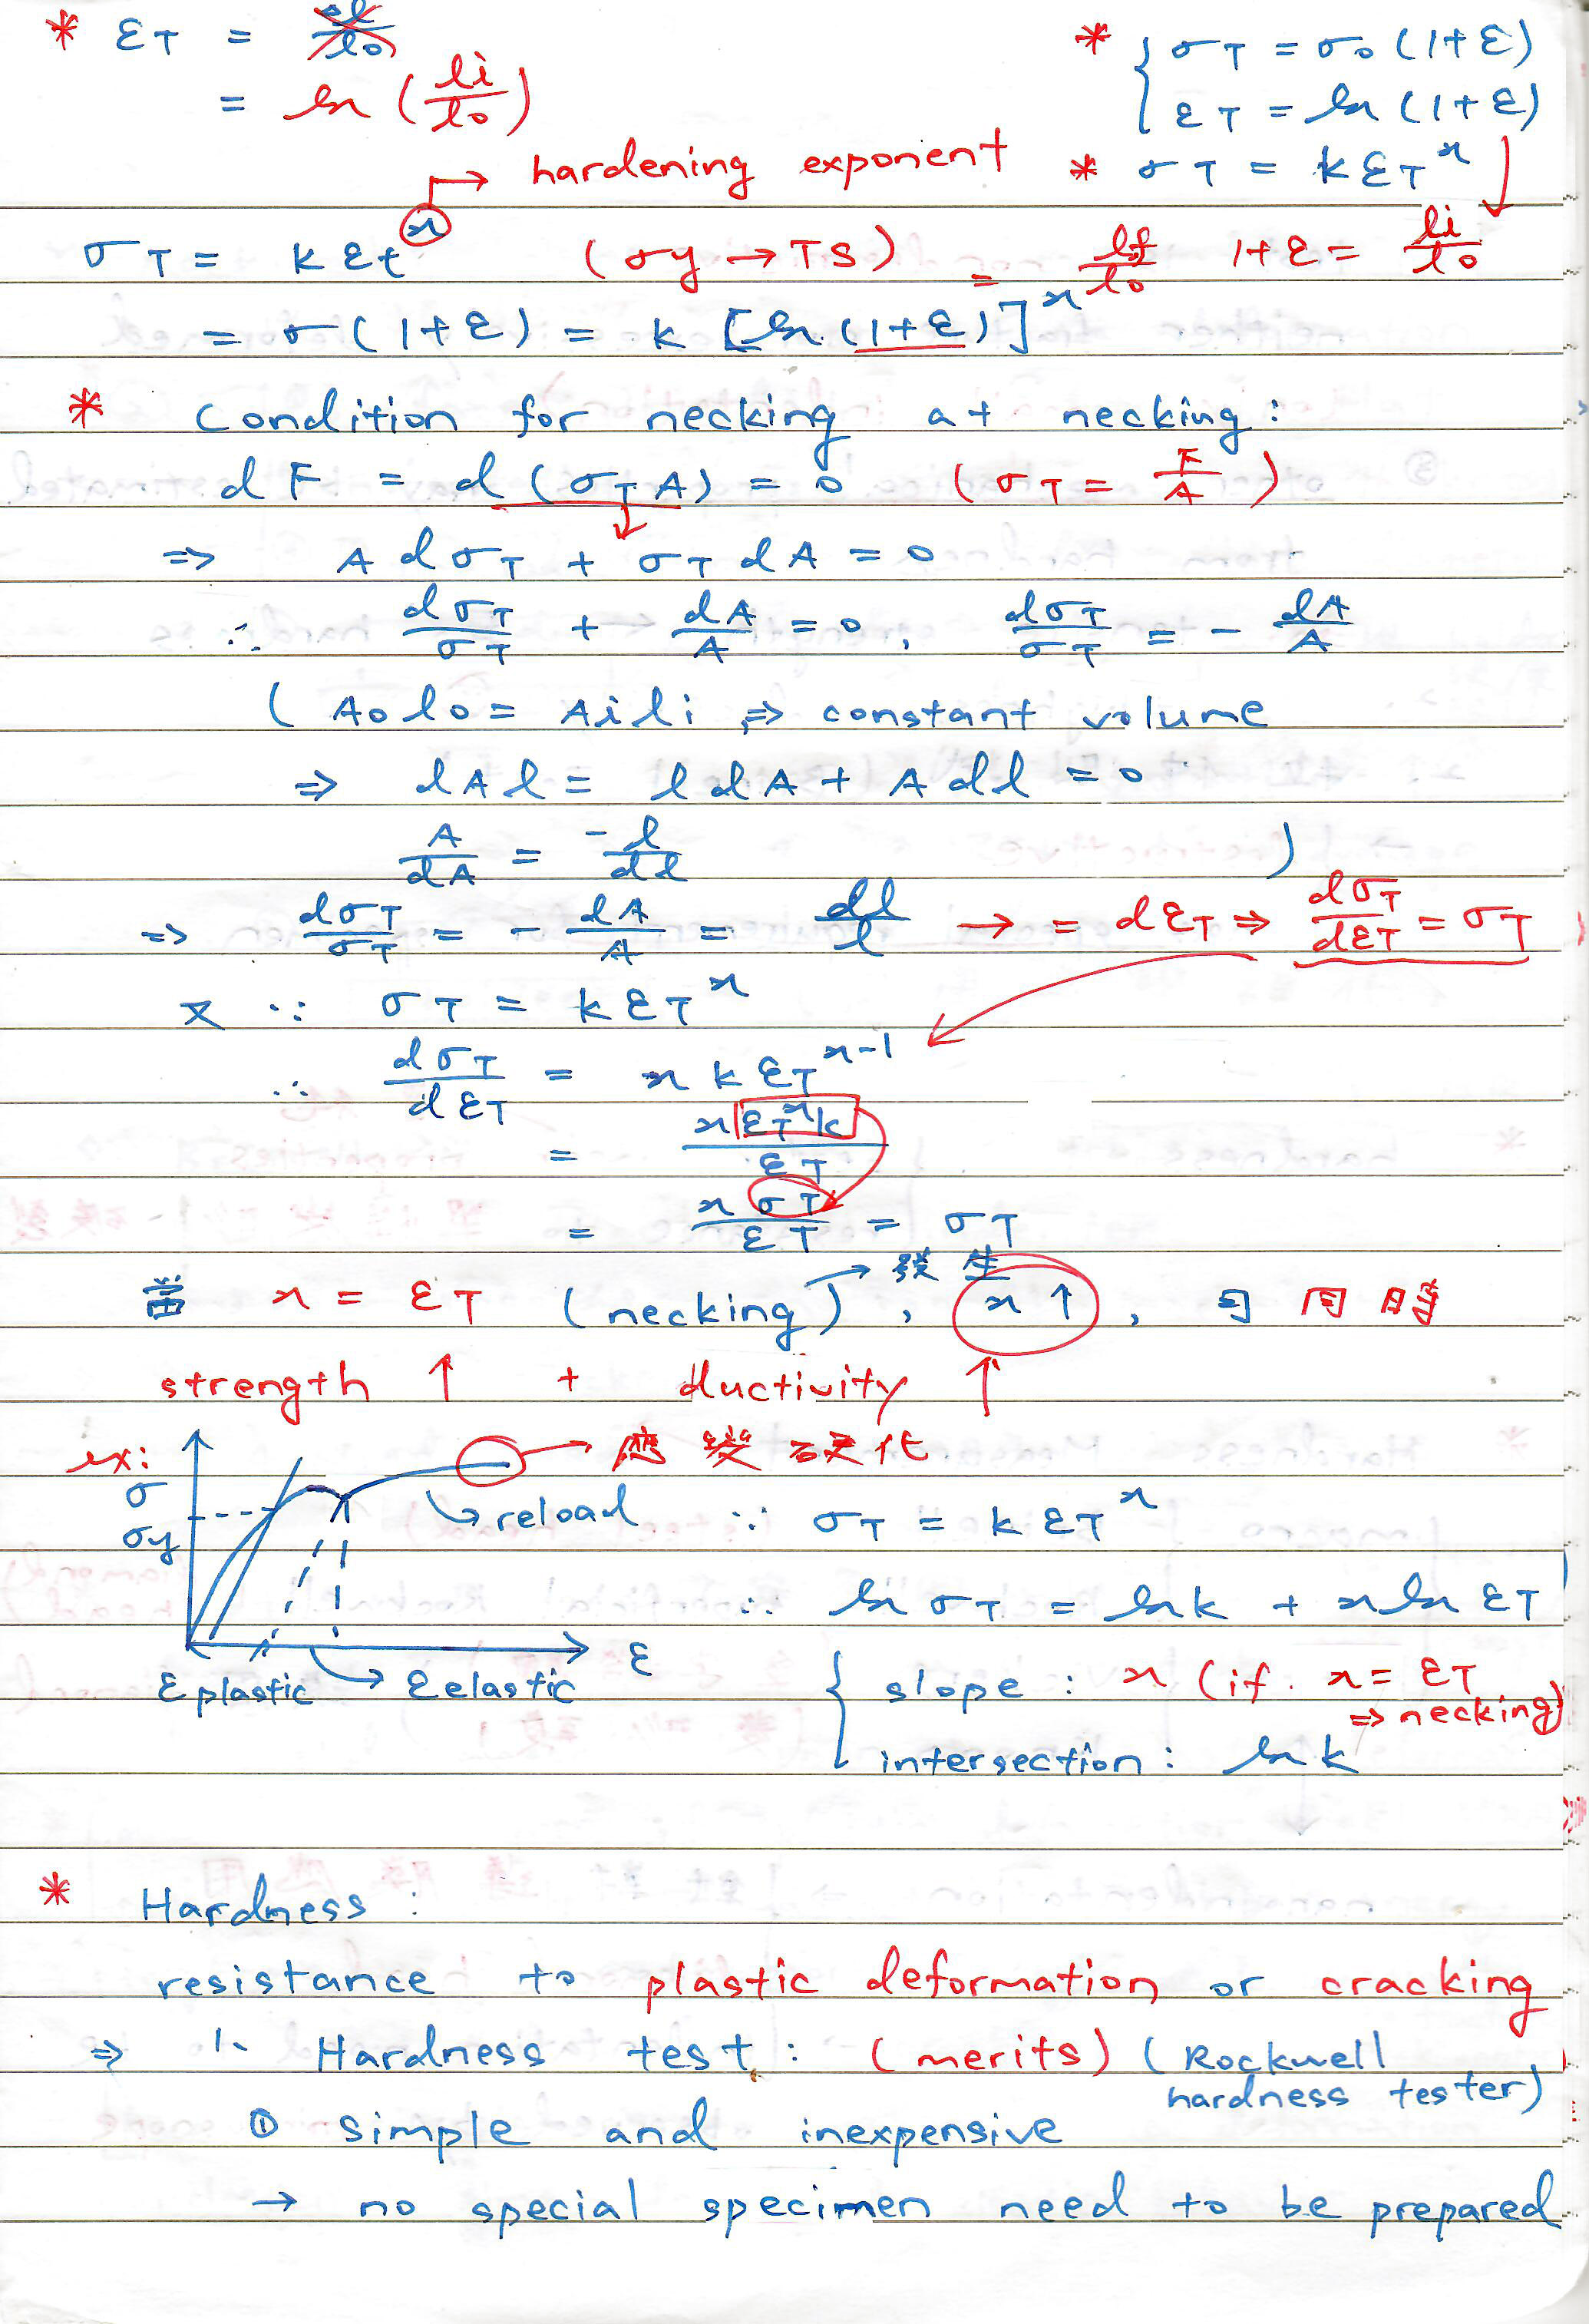 * εT = Δl/l0
= ln (li/l0)
* { σT = σ0 (1+ε)
εT = ln (1+ε)
→ hardening exponent
* σT = kεT^n
σT = kεt^n (σy → TS) = lf/l0 1+ε = li/l0
= σ(1+ε) = k [ln (1+ε)]^n
* Condition for necking at necking:
dF = d(σT A) = 0 (σT = F/A)
⇒ A dσT + σT dA = 0
∴ dσT/σT + dA/A = 0, dσT/σT = - dA/A
( A0 l0 = Ai li ⇒ constant volume
⇒ dAl = l dA + A dl = 0
A/dA = -l/dl )
⇒ dσT/σT = - dA/A = dl/l → = dεT ⇒ dσT/dεT = σT
又 ∵ σT = kεT^n
∴ dσT/dεT = n k εT^(n-1)
= n εT^n k / εT
= n σT / εT = σT
當 n = εT (necking) → 發生, n↑, 可同時
strength ↑ + ductivity ↑
ex:
→ 應變硬化
σ
σy
→ reload ∵ σT = kεT^n
∴ ln σT = ln k + n ln εT
ε
ε plastic → ε elastic
{ slope : n (if. n = εT
⇒ necking)
intersection : ln k
* Hardness :
resistance to plastic deformation or cracking
⇒ 1. Hardness test : (merits) (Rockwell
hardness tester)
① simple and inexpensive
→ no special specimen need to be prepared